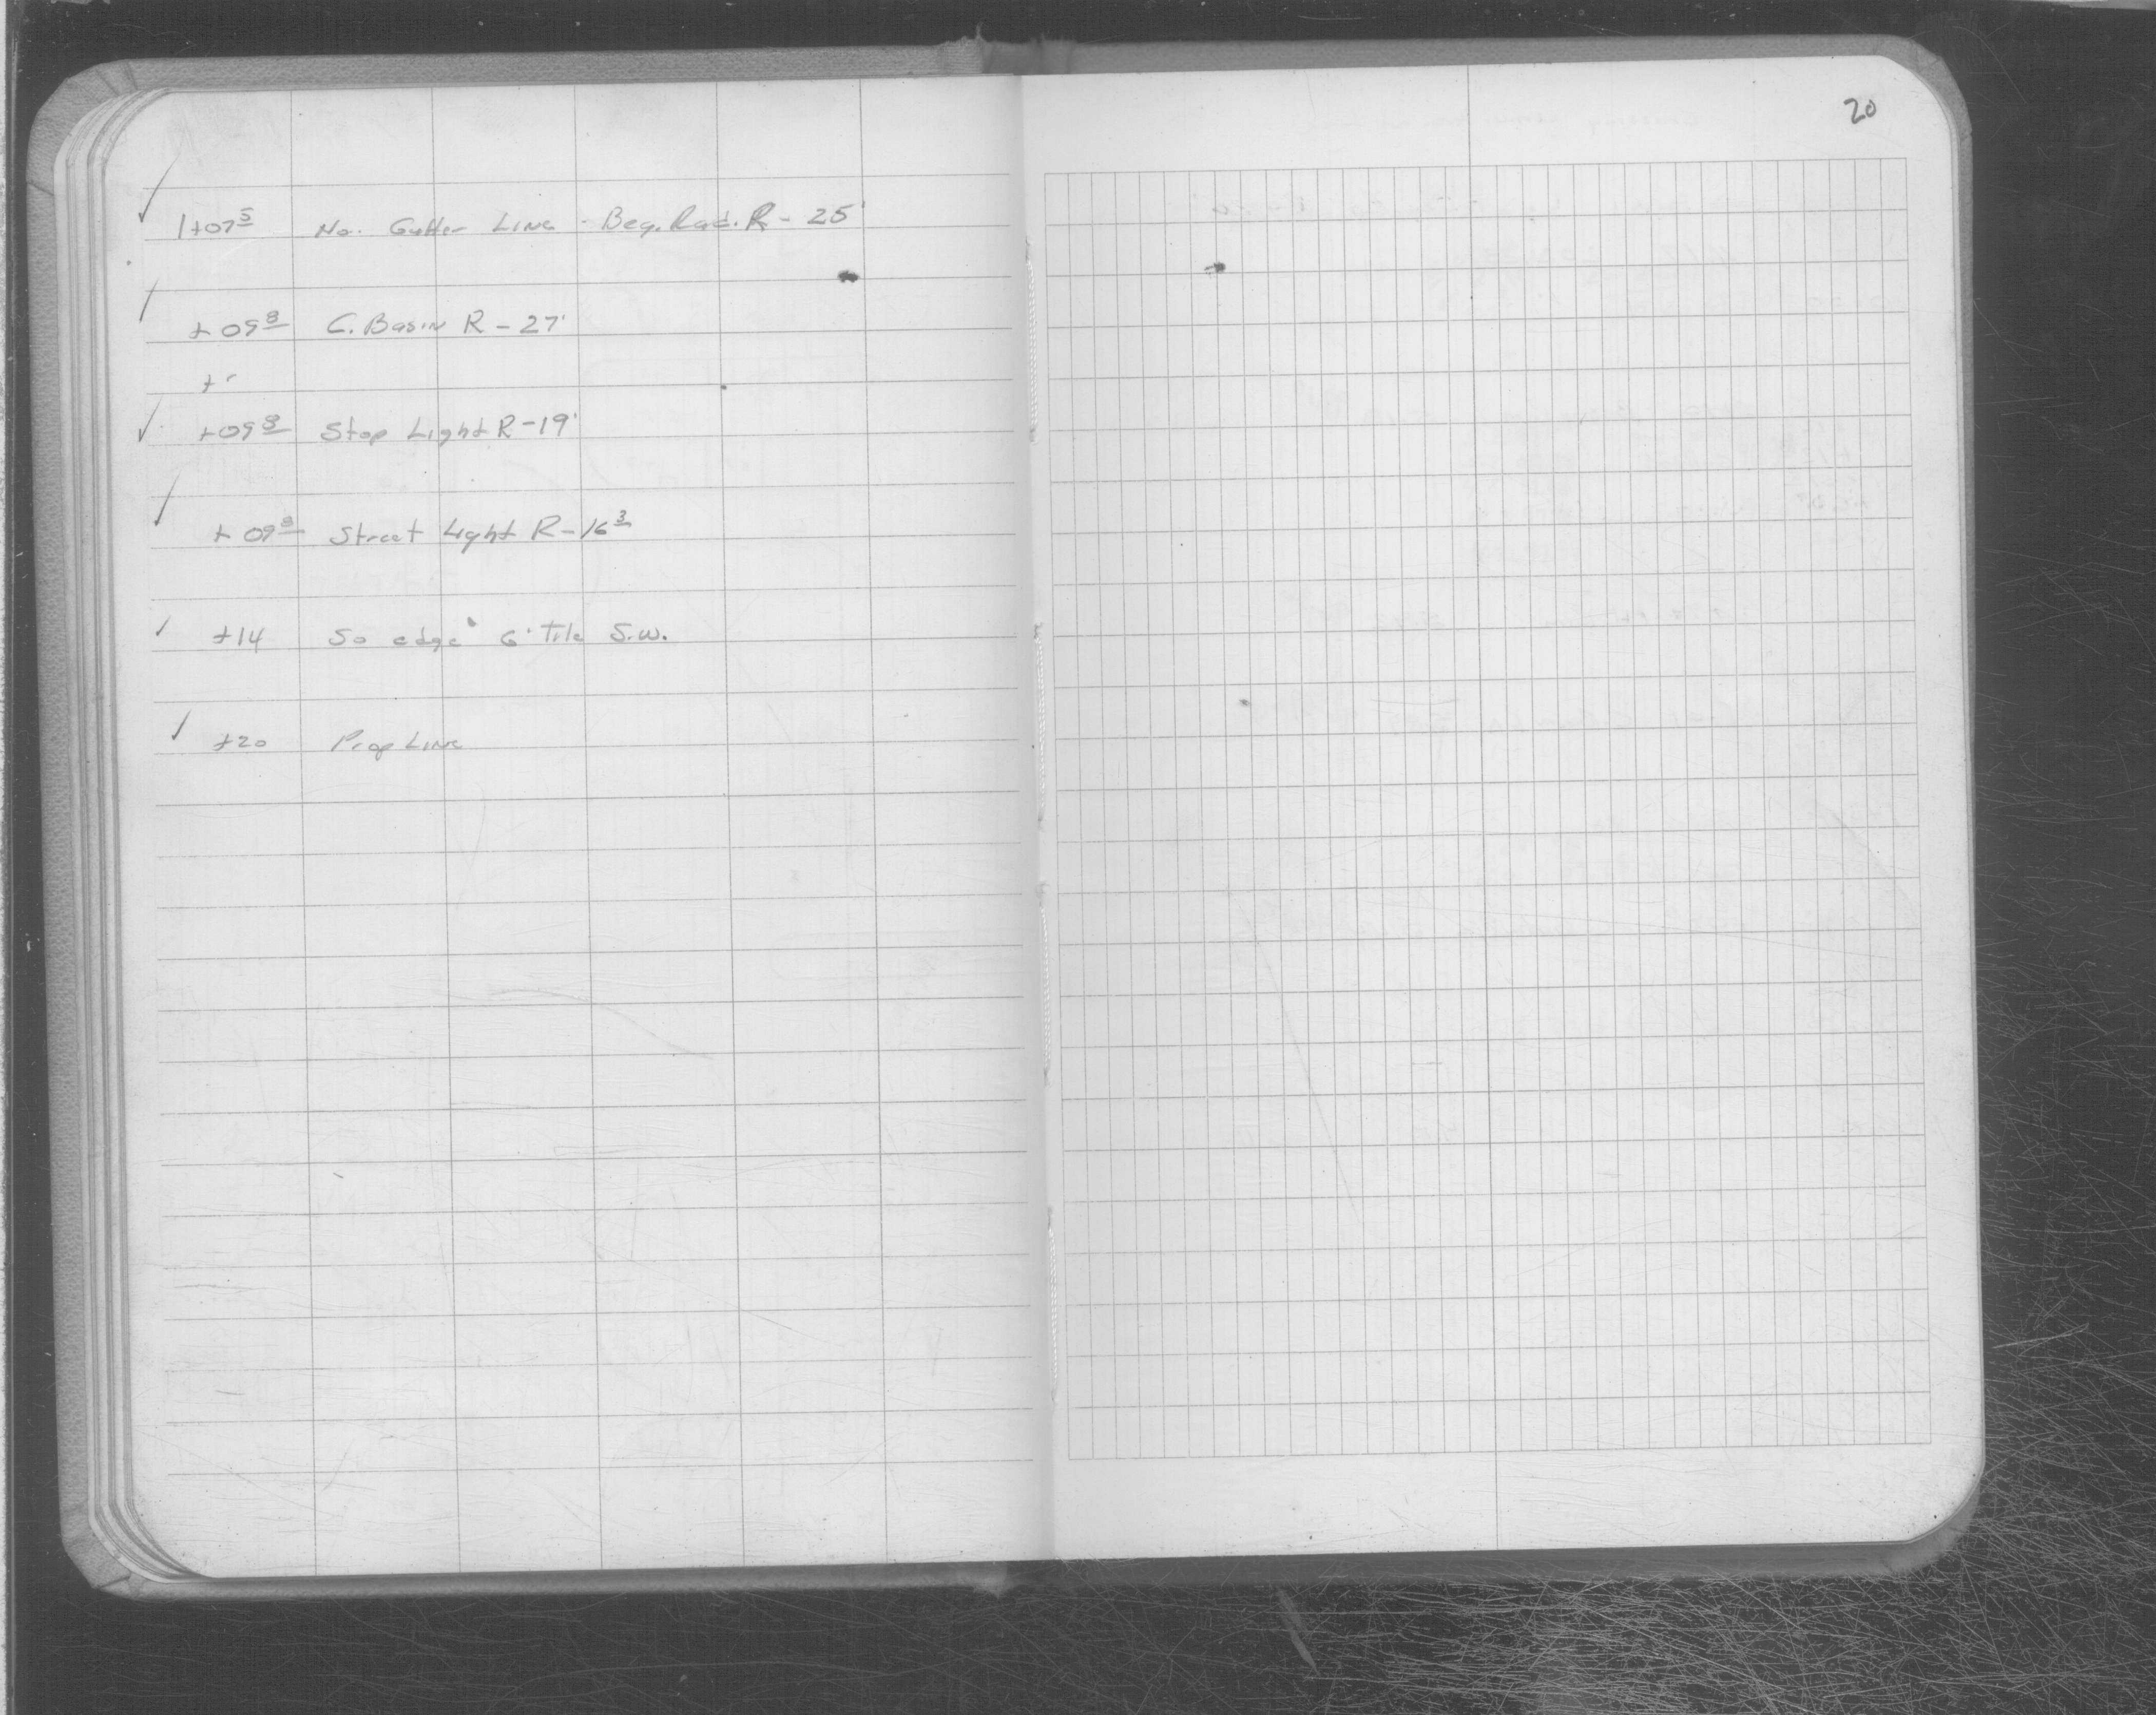 20
✓ 1+07⁵ No. Gutter Line - Beg. Rad. R - 25'
✓ +09⁸ C. Basin R - 27'
+
✓ +09⁸ Stop Light R - 19'
✓ +09⁸ Street Light R - 16³
✓ +14 So edge 6' Tile S.W.
✓ +20 Prop Line